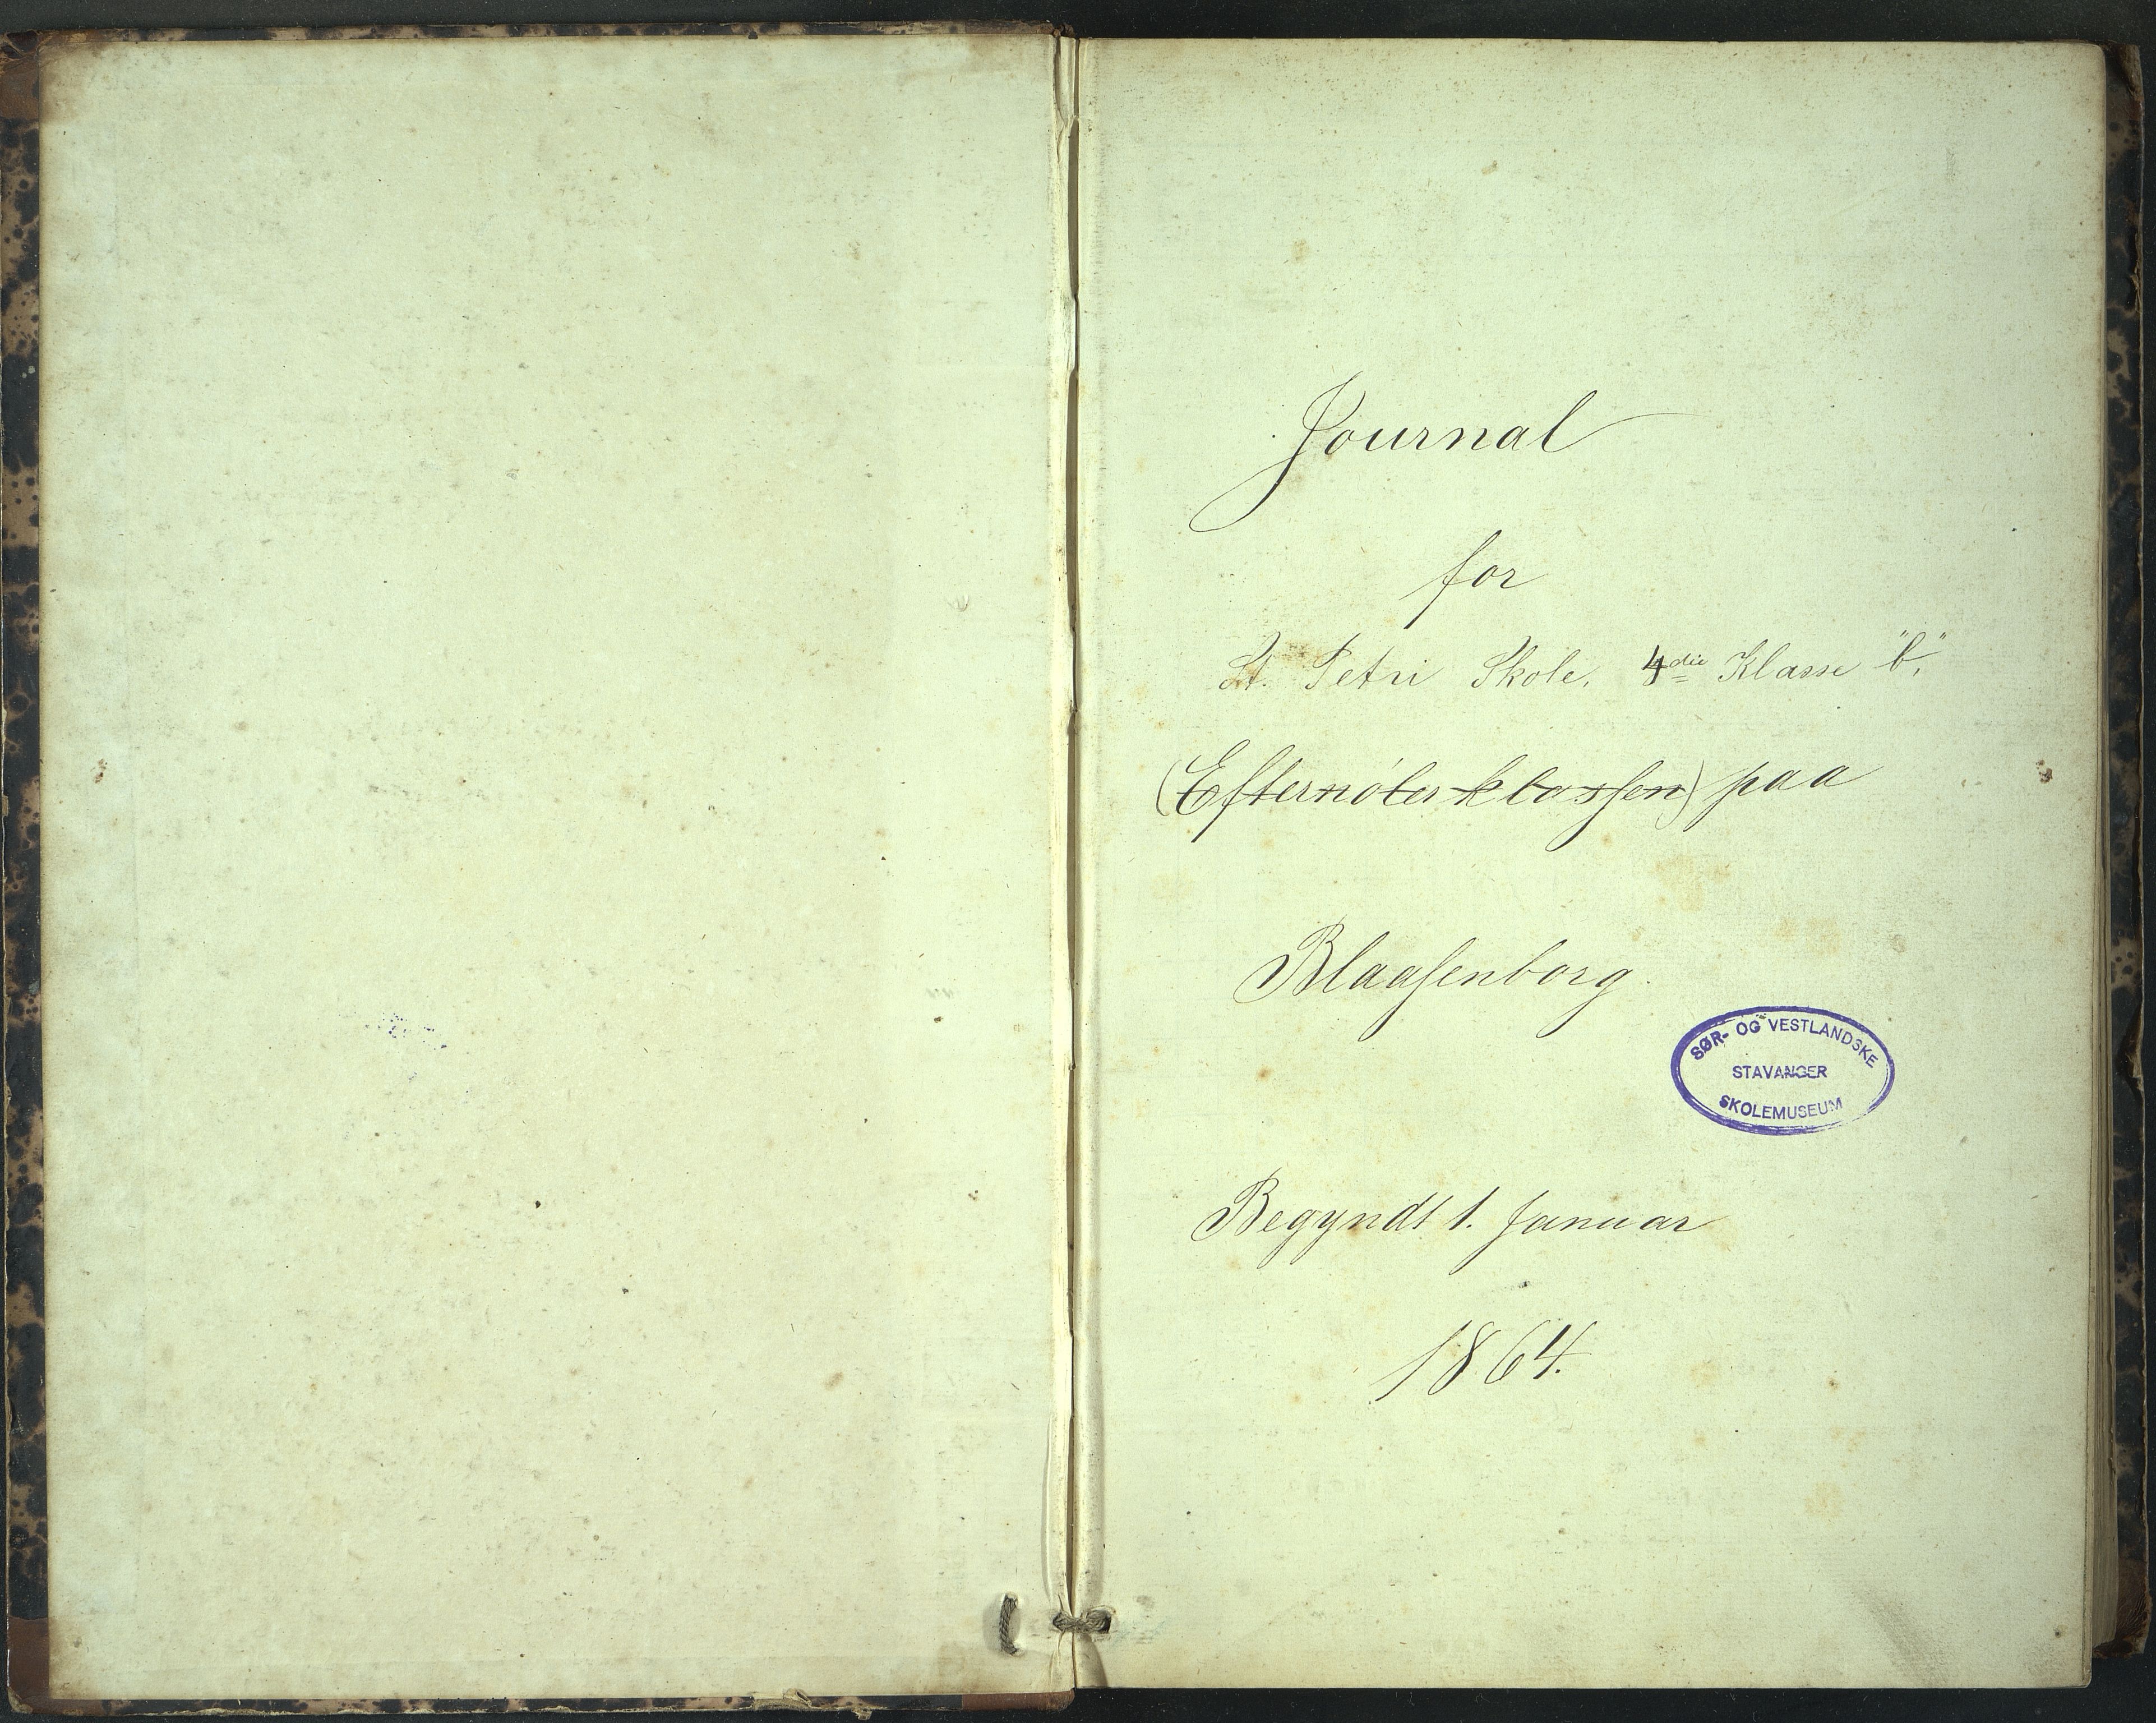 Journal
for
St. Petri Skole, 4die Klasse "b",
(Efternølerklassen) paa
Blaasenborg.
SØR- OG VESTLANDSKE
STAVANGER
SKOLEMUSEUM
Begyndt 1. Januar
1864.